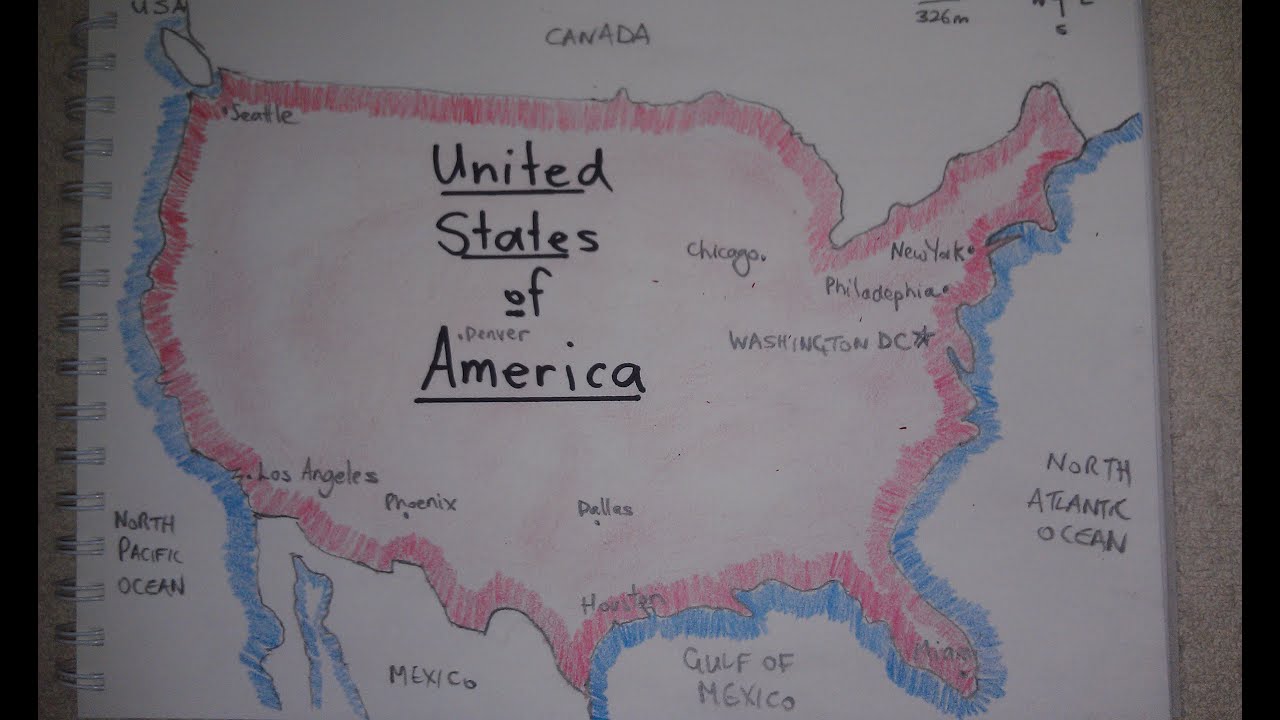 USA
326m
N E
S
CANADA
Seattle
United
States
of
America
Denver
Chicago
New York
Philadephia
WASHINGTON DC
Los Angeles
Phoenix
Dallas
Houston
Miami
NORTH
PACIFIC
OCEAN
NORTH
ATLANTIC
OCEAN
MEXICO
GULF OF
MEXICO